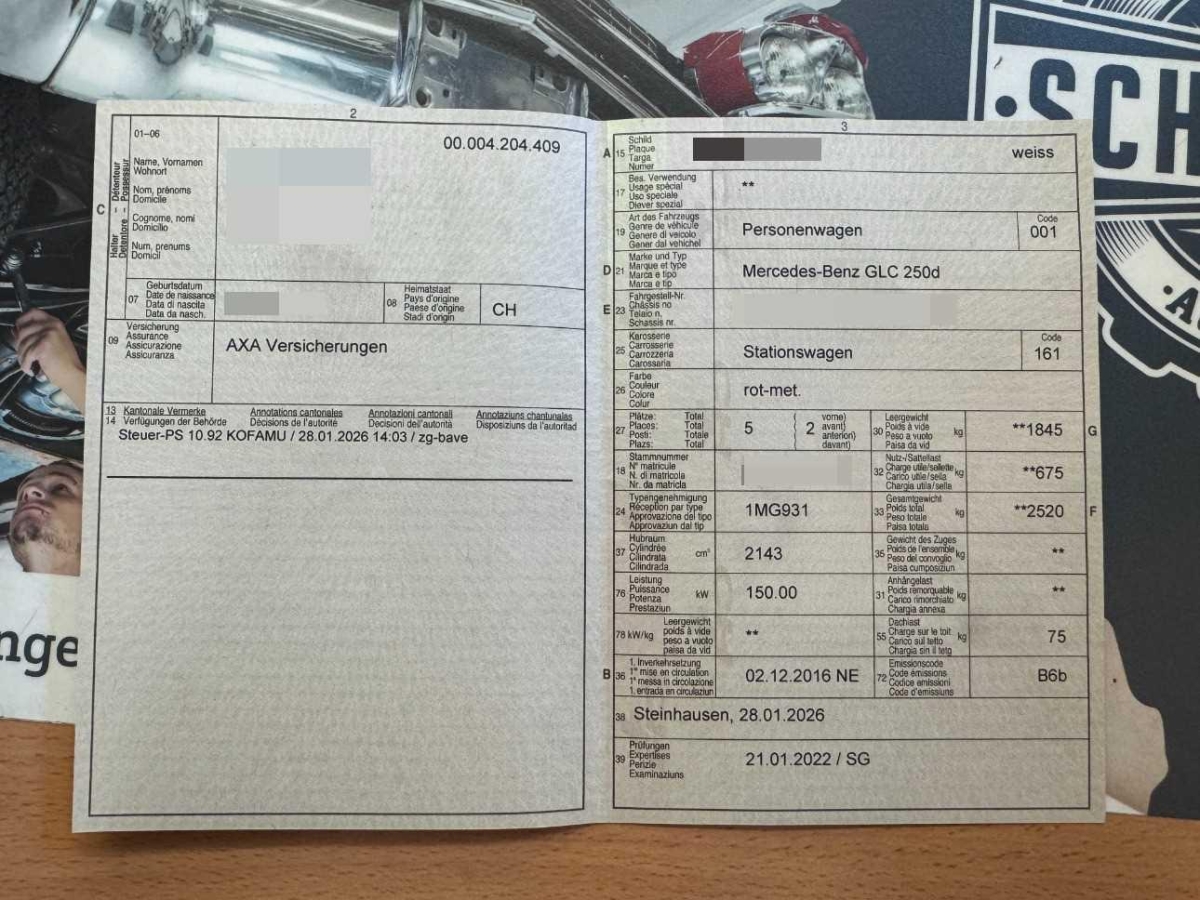 2
01–06
00.004.204.409
C
Halter – Détenteur
Detentore – Possessur
Name, Vornamen
Wohnort
Nom, prénoms
Domicile
Cognome, nomi
Domicilio
Num, prenums
Domicil
07
Geburtsdatum
Date de naissance
Data di nascita
Data da nasch.
08
Heimatstaat
Pays d'origine
Paese d'origine
Stadi d'origin
CH
09
Versicherung
Assurance
Assicurazione
Assicuranza
AXA Versicherungen
13 Kantonale Vermerke Annotations cantonales Annotazioni cantonali Annotaziuns chantunalas
14 Verfügungen der Behörde Décisions de l'autorité Decisioni dell'autorità Disposiziuns da l'autoritad
Steuer-PS 10.92 KOFAMU / 28.01.2026 14:03 / zg-bave
3
A 15
Schild
Plaque
Targa
Numer
weiss
17
Bes. Verwendung
Usage spécial
Uso speciale
Diever spezial
**
19
Art des Fahrzeugs
Genre de véhicule
Genere di veicolo
Gener dal vehichel
Personenwagen
Code
001
D 21
Marke und Typ
Marque et type
Marca e tipo
Marca e tip
Mercedes-Benz GLC 250d
E 23
Fahrgestell-Nr.
Châssis no
Telaio n.
Schassis nr.
25
Karosserie
Carrosserie
Carrozzeria
Carossaria
Stationswagen
Code
161
26
Farbe
Couleur
Colore
Colur
rot-met.
27
Plätze: Total
Places: Total
Posti: Totale
Plazs: Total
5
2
vorne)
avant)
anteriori)
davant)
30
Leergewicht
Poids à vide
Peso a vuoto
Paisa da vid
kg
**1845
G
18
Stammnummer
N° matricule
N. di matricola
Nr. da matricla
32
Nutz-/Sattellast
Charge utile/sellette
Carico utile/sella
Chargia utila/sella
kg
**675
24
Typengenehmigung
Réception par type
Approvazione del tipo
Approvaziun dal tip
1MG931
33
Gesamtgewicht
Poids total
Peso totale
Paisa totala
kg
**2520
F
37
Hubraum
Cylindrée
Cilindrata
Cilindrada
cm³
2143
35
Gewicht des Zuges
Poids de l'ensemble
Peso del convoglio
Paisa cumposiziun
kg
**
76
Leistung
Puissance
Potenza
Prestaziun
kW
150.00
31
Anhängelast
Poids remorquable
Carico rimorchiato
Chargia annexa
kg
**
78 kW/kg
Leergewicht
poids à vide
peso a vuoto
paisa da vid
**
55
Dachlast
Charge sur le toit
Carico sul tetto
Chargia sin il tetg
kg
75
B 36
1. Inverkehrsetzung
1re mise en circulation
1a messa in circolazione
1. entrada en circulaziun
02.12.2016 NE
72
Emissionscode
Code émissions
Codice emissioni
Code d'emissiuns
B6b
38
Steinhausen, 28.01.2026
39
Prüfungen
Expertises
Perizie
Examinaziuns
21.01.2022 / SG
SCH
nge